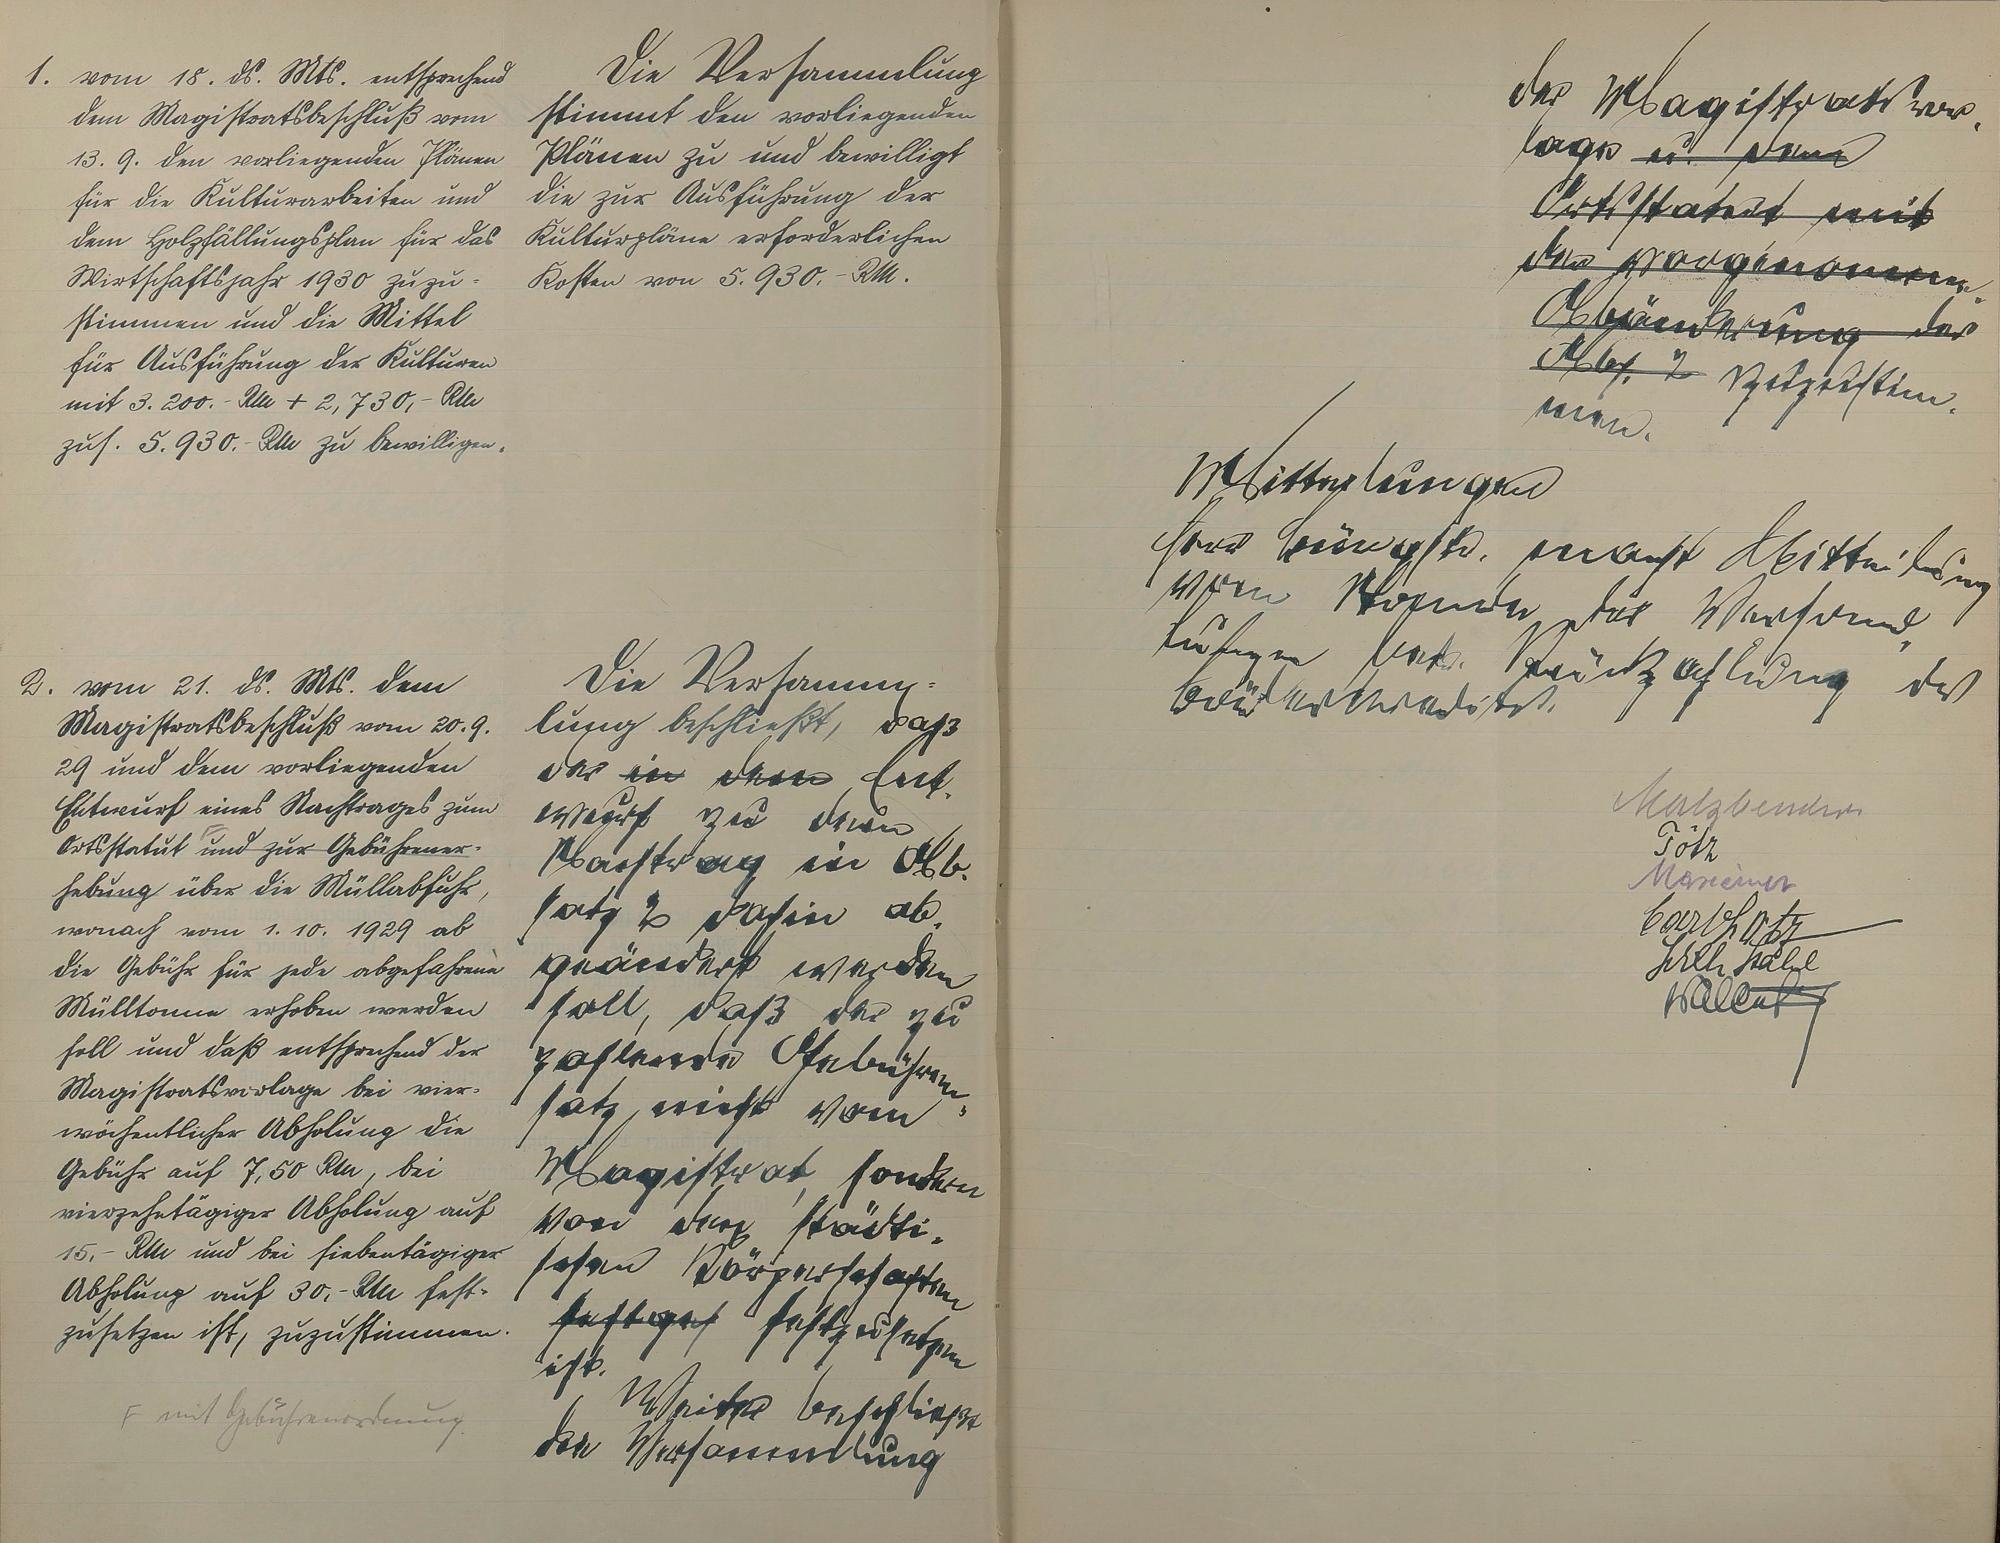 1. vom 18. ds. Mts. entsprechend
dem Magistratsbeschluß vom
13. 9. den vorliegenden Plänen
für die Kulturarbeiten und
dem Holzfällungsplan für das
Wirtschaftsjahr 1930 zuzu-
stimmen und die Mittel
für Ausführung der Kulturen
mit 3.200.- RM + 2,730,- RM
zus. 5.930.- RM zu bewilligen.
Die Versammlung
stimmt den vorliegenden
Plänen zu und bewilligt
die zur Ausführung der
Kulturpläne erforderlichen
Kosten von 5.930.- RM.
2. vom 21. ds. Mts. dem
Magistratsbeschluß vom 20.9.
29 und dem vorliegenden
Entwurf eines Nachtrages zum
Ortsstatut und zur Gebührener-
hebung über die Müllabfuhr,
wonach vom 1. 10. 1929 ab
die Gebühr für jede abgefahrene
Mülltonne erhoben werden
soll und daß entsprechend der
Magistratsvorlage bei vier-
wöchentlicher Abholung die
Gebühr auf 7,50 RM, bei
vierzehntägiger Abholung auf
15.- RM und bei siebentägiger
Abholung auf 30,- RM fest-
zusetzen ist, zuzustimmen.
F mit Gebührenordnung
Die Versamm-
lung beschließt, daß
der in dem Ent-
wurf zu dem
Nachtrag in Ab-
satz 2 dahin ab-
geändert werden
soll, daß der zu
zahlende Gebühren-
satz nicht vom
Magistrat, sondern
von den städti-
schen Körperschaften
festges festzusetzen
ist.
Weiter beschließt
die Versammlung
der Magistratsvor-
lage u. dem
Ortsstatut mit
der vorgenomm.
Abänderung des
Abs. 2 zuzustim-
men.
Mitteilungen
Herr Bürgstr. macht Mitteilung
vom der Verhand-
lungen Rückzahlung des

Götz